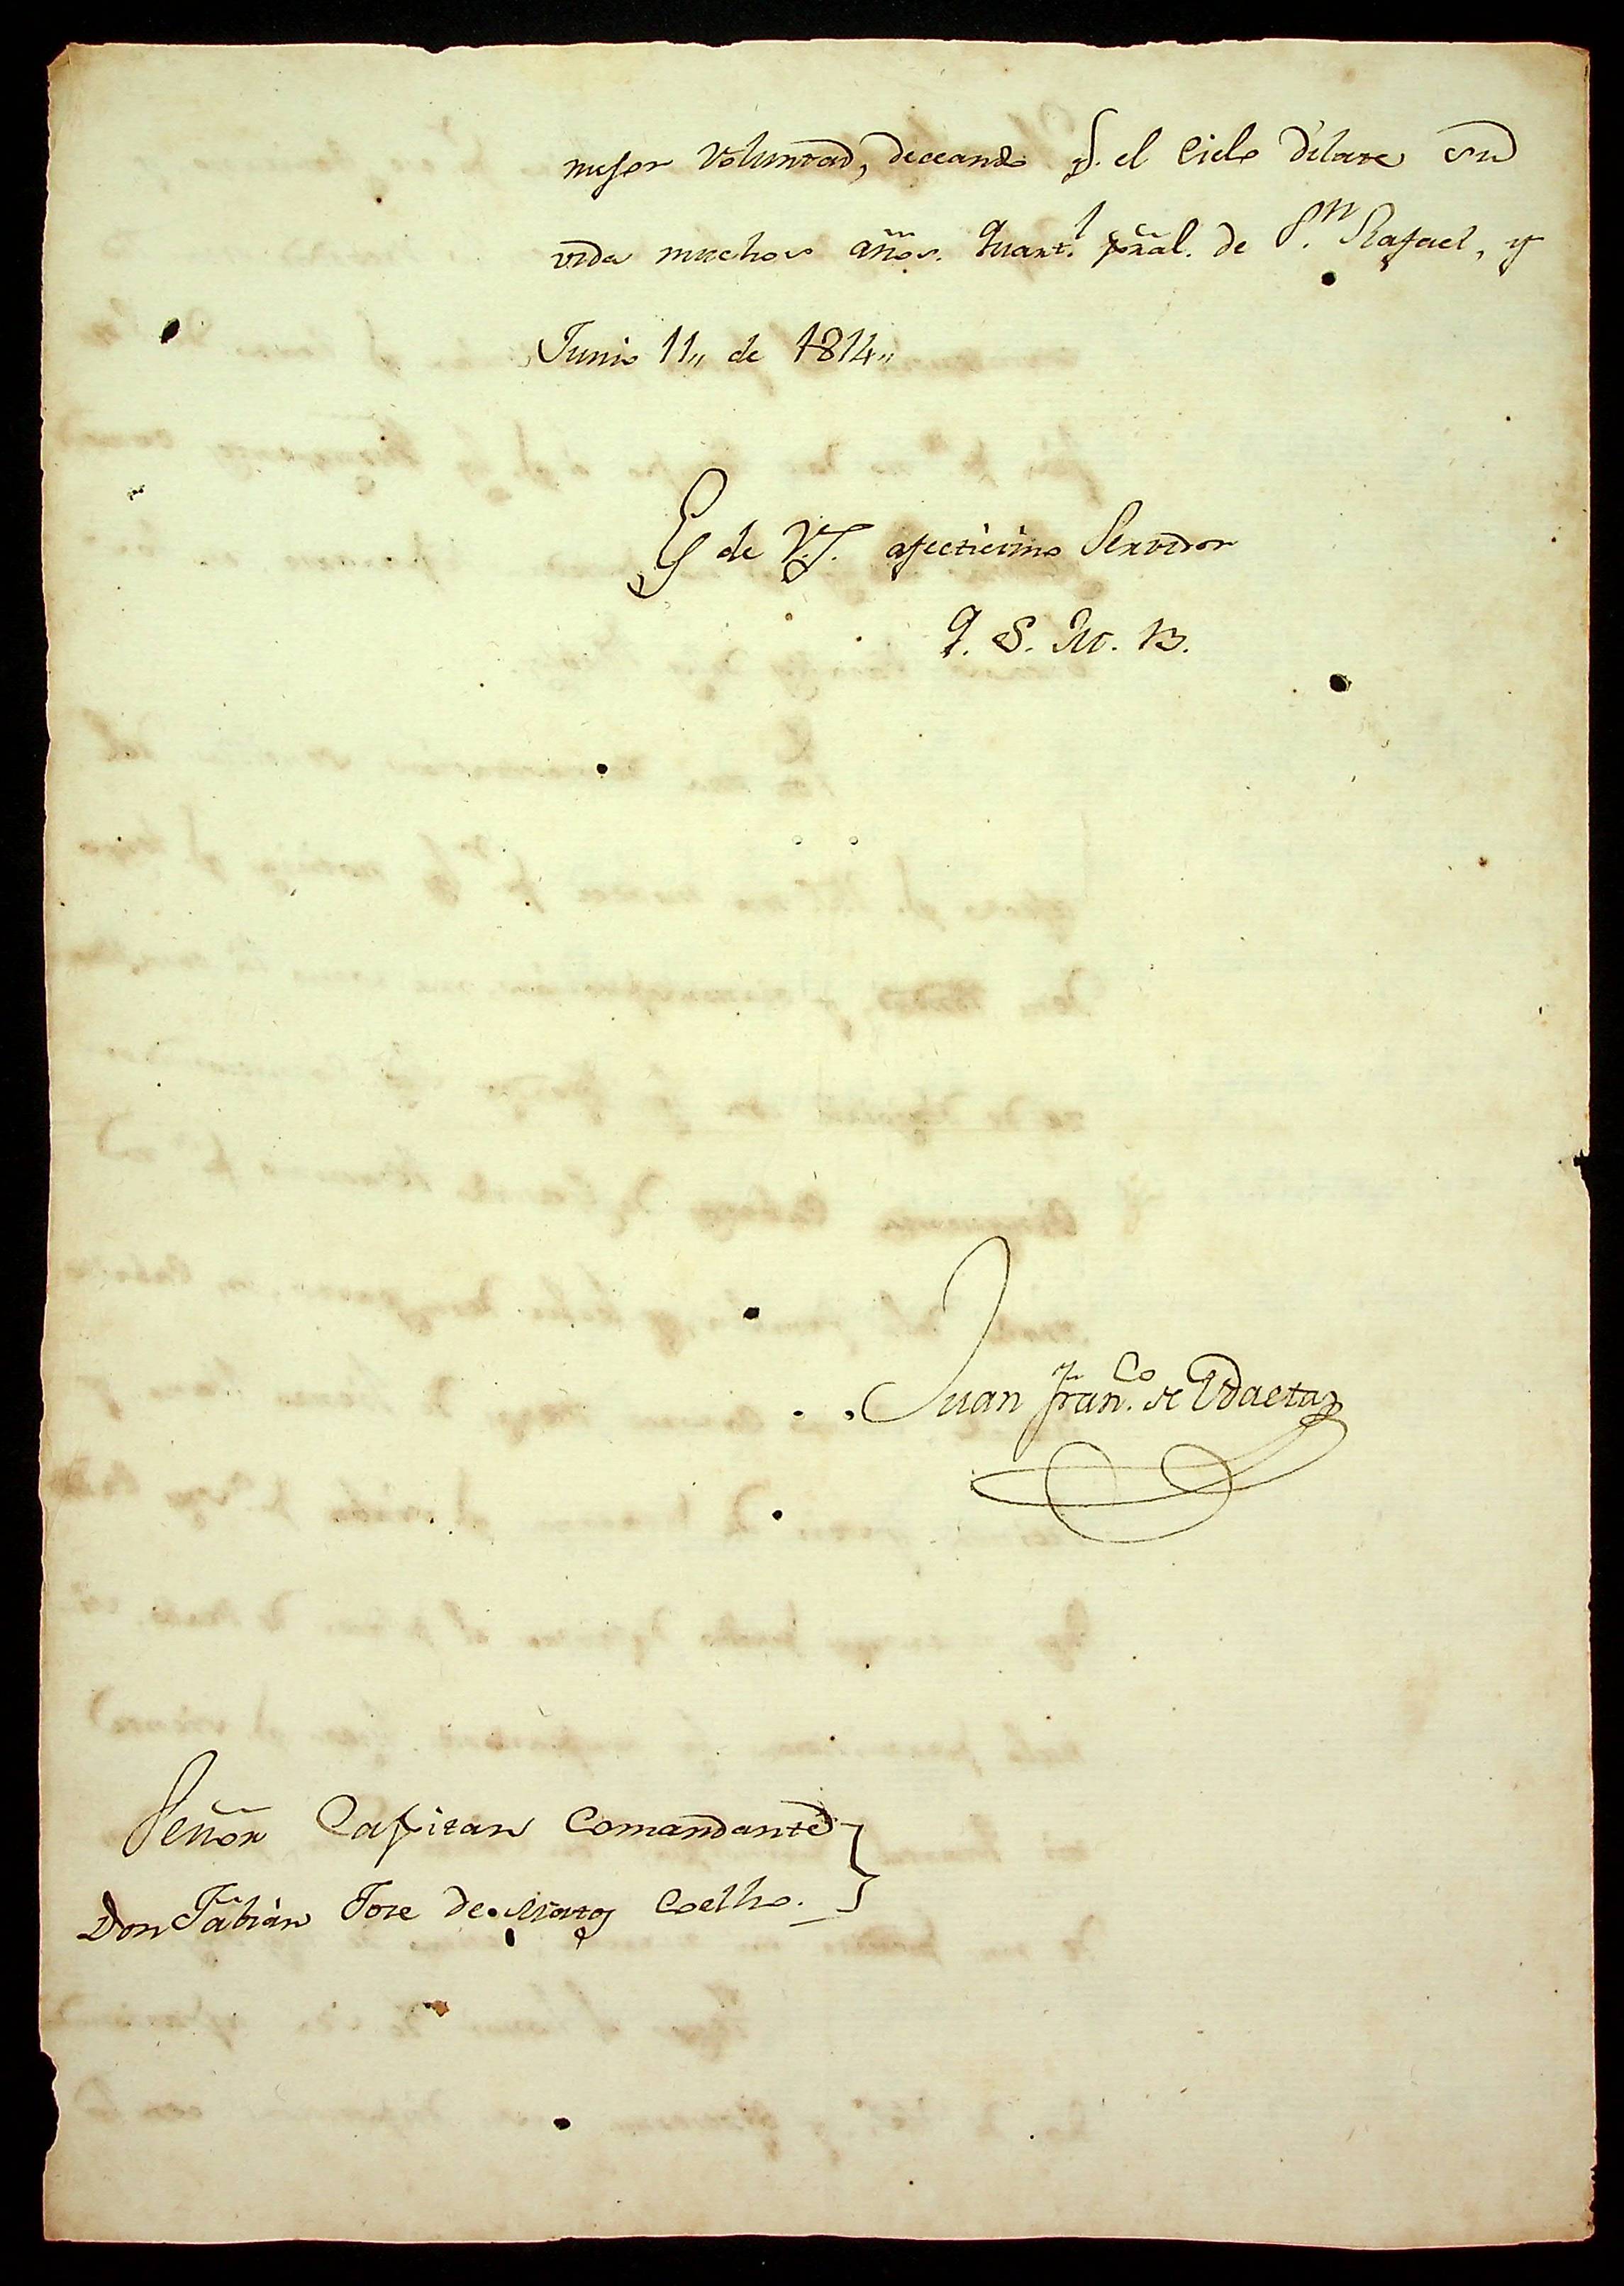 mejor Voluntad, deceando q.e el Cielo dilate su
vida muchos años. Quart.l pral. de S.n Rafael, y
Junio 11,, de 1814,,
de V.S. afectisimo Servidor
Q. S. M. B.
Juan Fran.co de Udaeta
Señor Capitan Comandante
Don Fabian Jose de Matos Coelho.